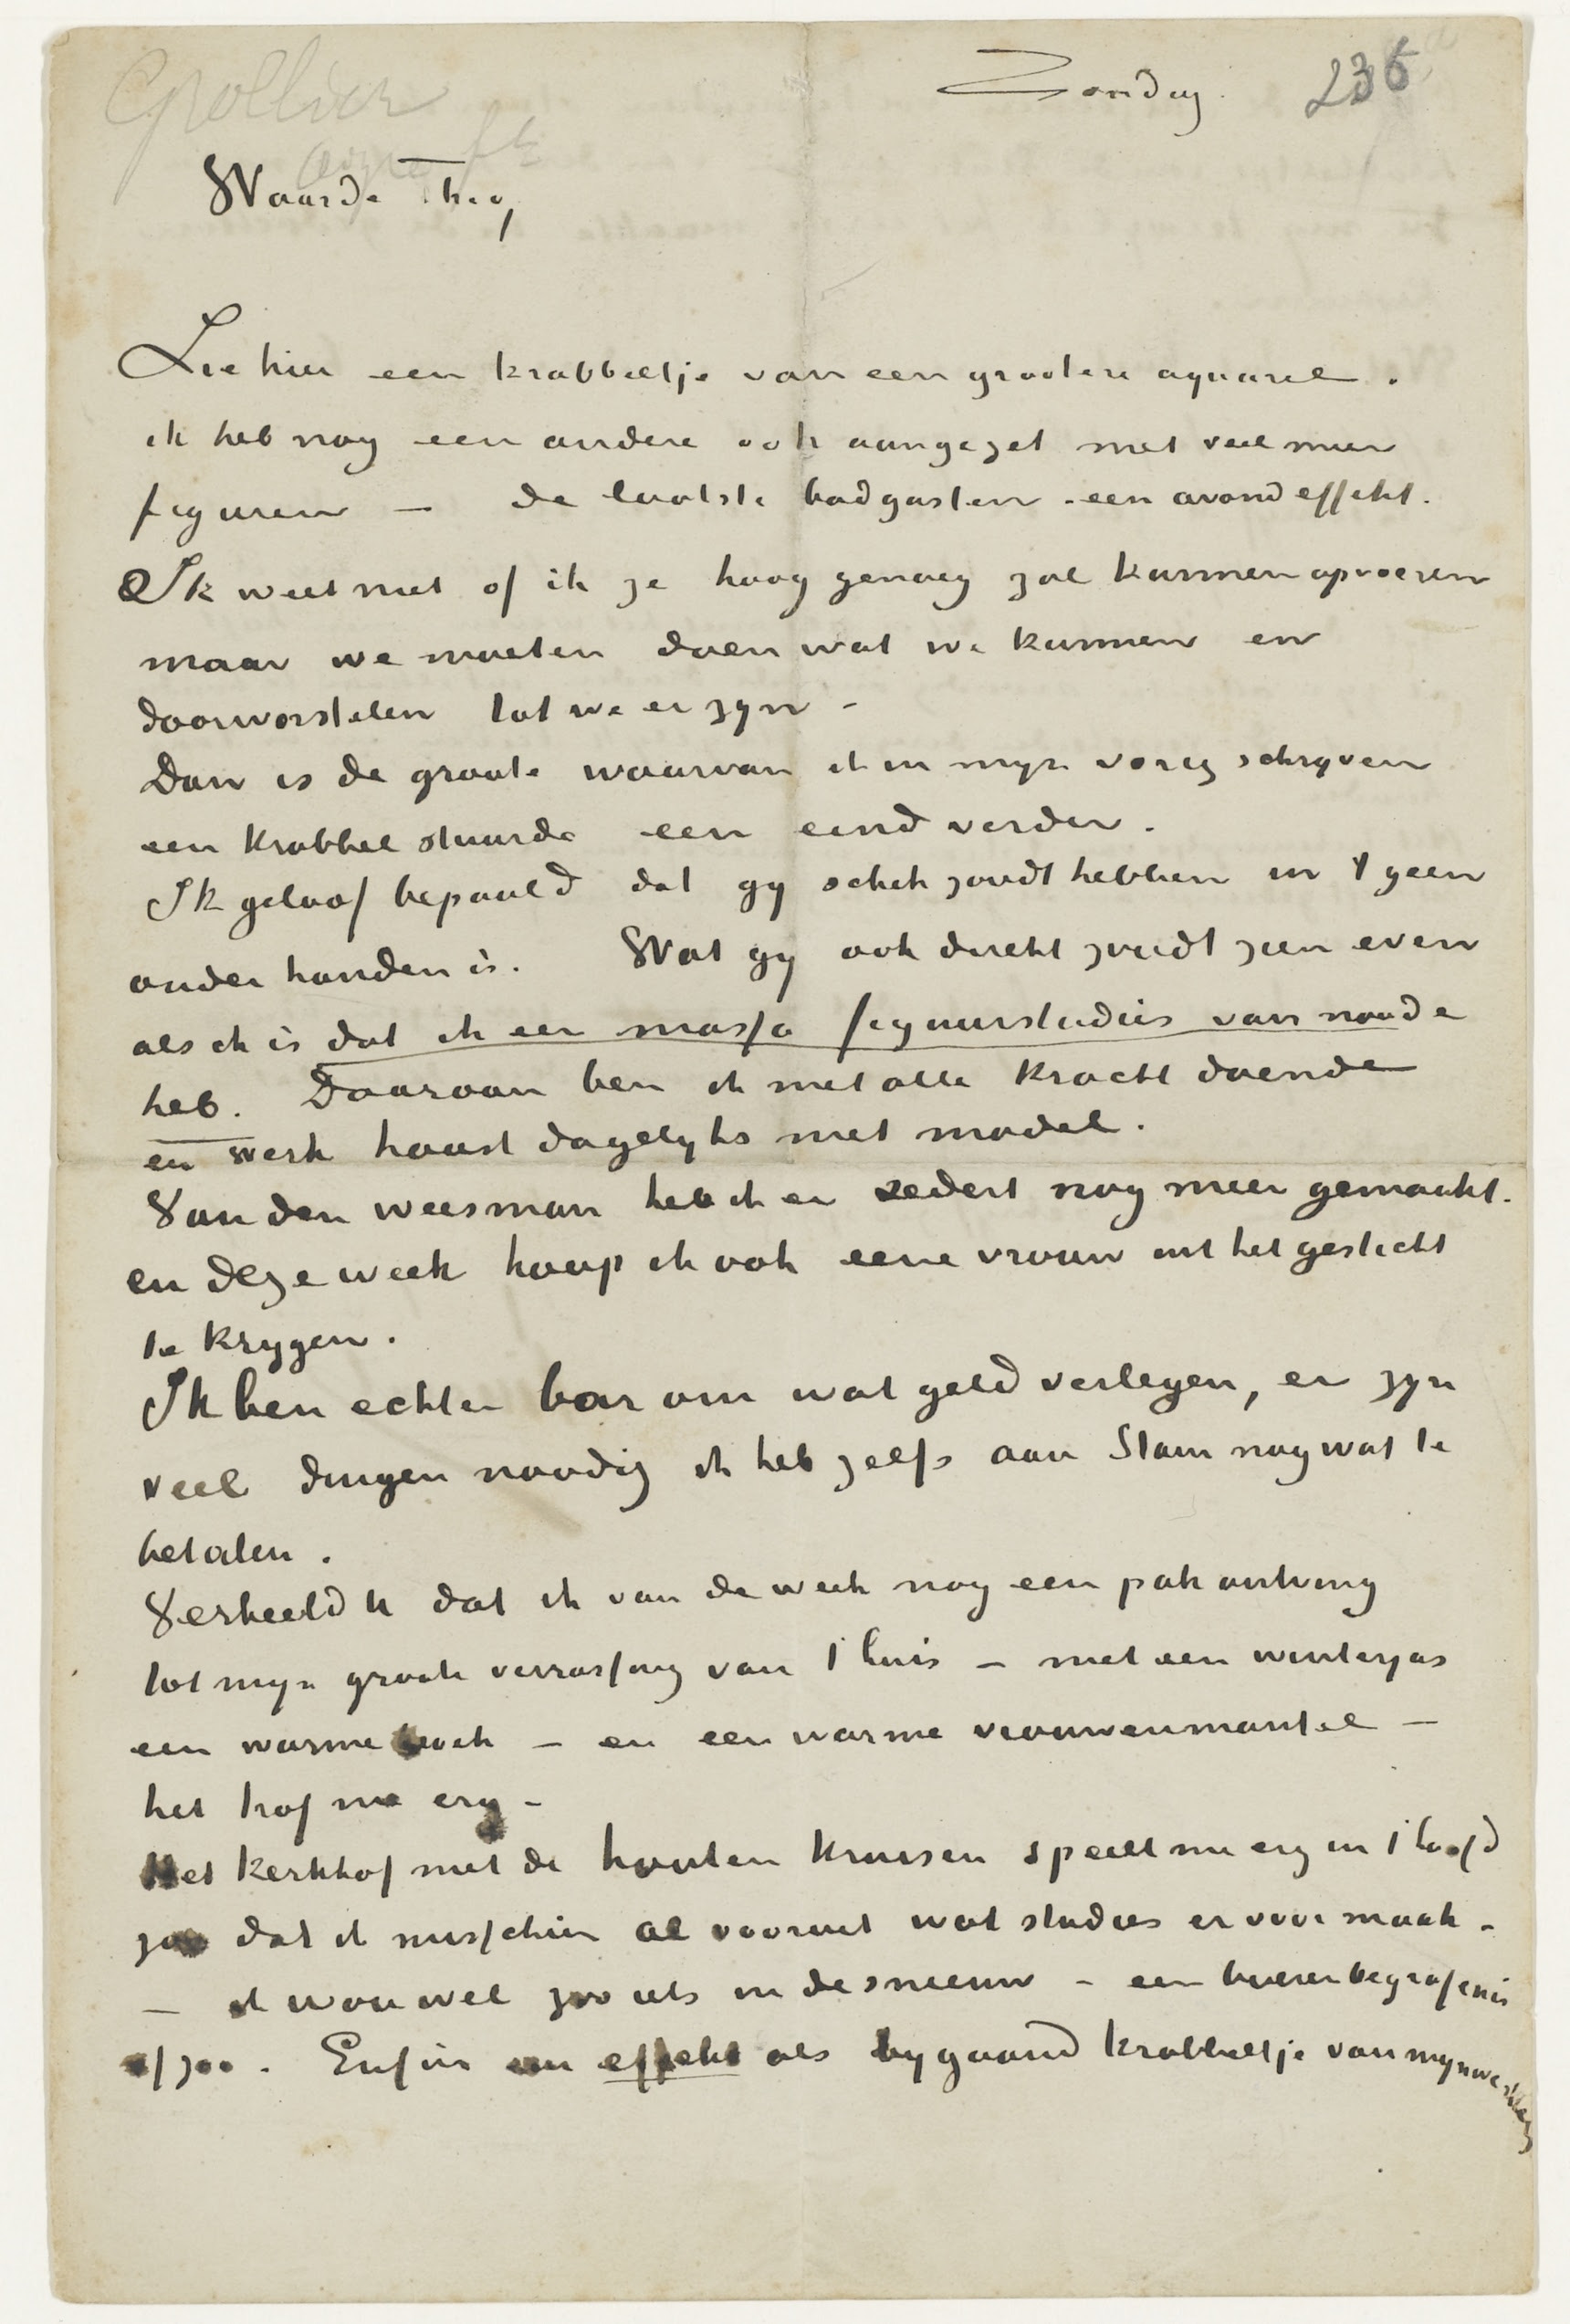 Zondag. 236
Waarde Theo,
Zie hier een krabbeltje van een grootere aquarel.
ik heb nog een andere ook aangezet met veel meer
figuren — de laatste badgasten – een avondeffekt.
Ik weet niet of ik ze hoog genoeg zal kunnen opvoeren
maar we moeten doen wat we kunnen en
doorworstelen tot we er zyn –
Dan is de groote waarvan ik in myn vorig schryven
een krabbel stuurde een eind verder.
Ik geloof bepaald dat gy schik zoudt hebben in 't geen
onder handen is. Wat gy ook direkt zoudt zien even
als ik is dat ik een massa figuurstudies van noode
heb. Daaraan ben ik met alle kracht doende
en werk haast dagelyks met model.
Van den weesman heb ik er zedert nog meer gemaakt.
en deze week hoop ik ook eene vrouw uit het gesticht
te krygen.
Ik ben echter bar om wat geld verlegen, er zyn
veel dingen noodig ik heb zelfs aan Stam nog wat te
betalen.
Verbeeld U dat ik van de week nog een pak ontving
tot myn groote verrassing van t huis – met een winterjas
een warme broek – en een warme vrouwenmantel –
het trof me erg –
Het kerkhof met de houten kruisen speelt me erg in t hoofd
zoo dat ik misschien al vooruit wat studies er voor maak –
– ik wou wel zoo iets in de sneeuw – een boerenbegrafenis
of zoo. Enfin een effekt als bygaand krabbeltje van mynwerkers